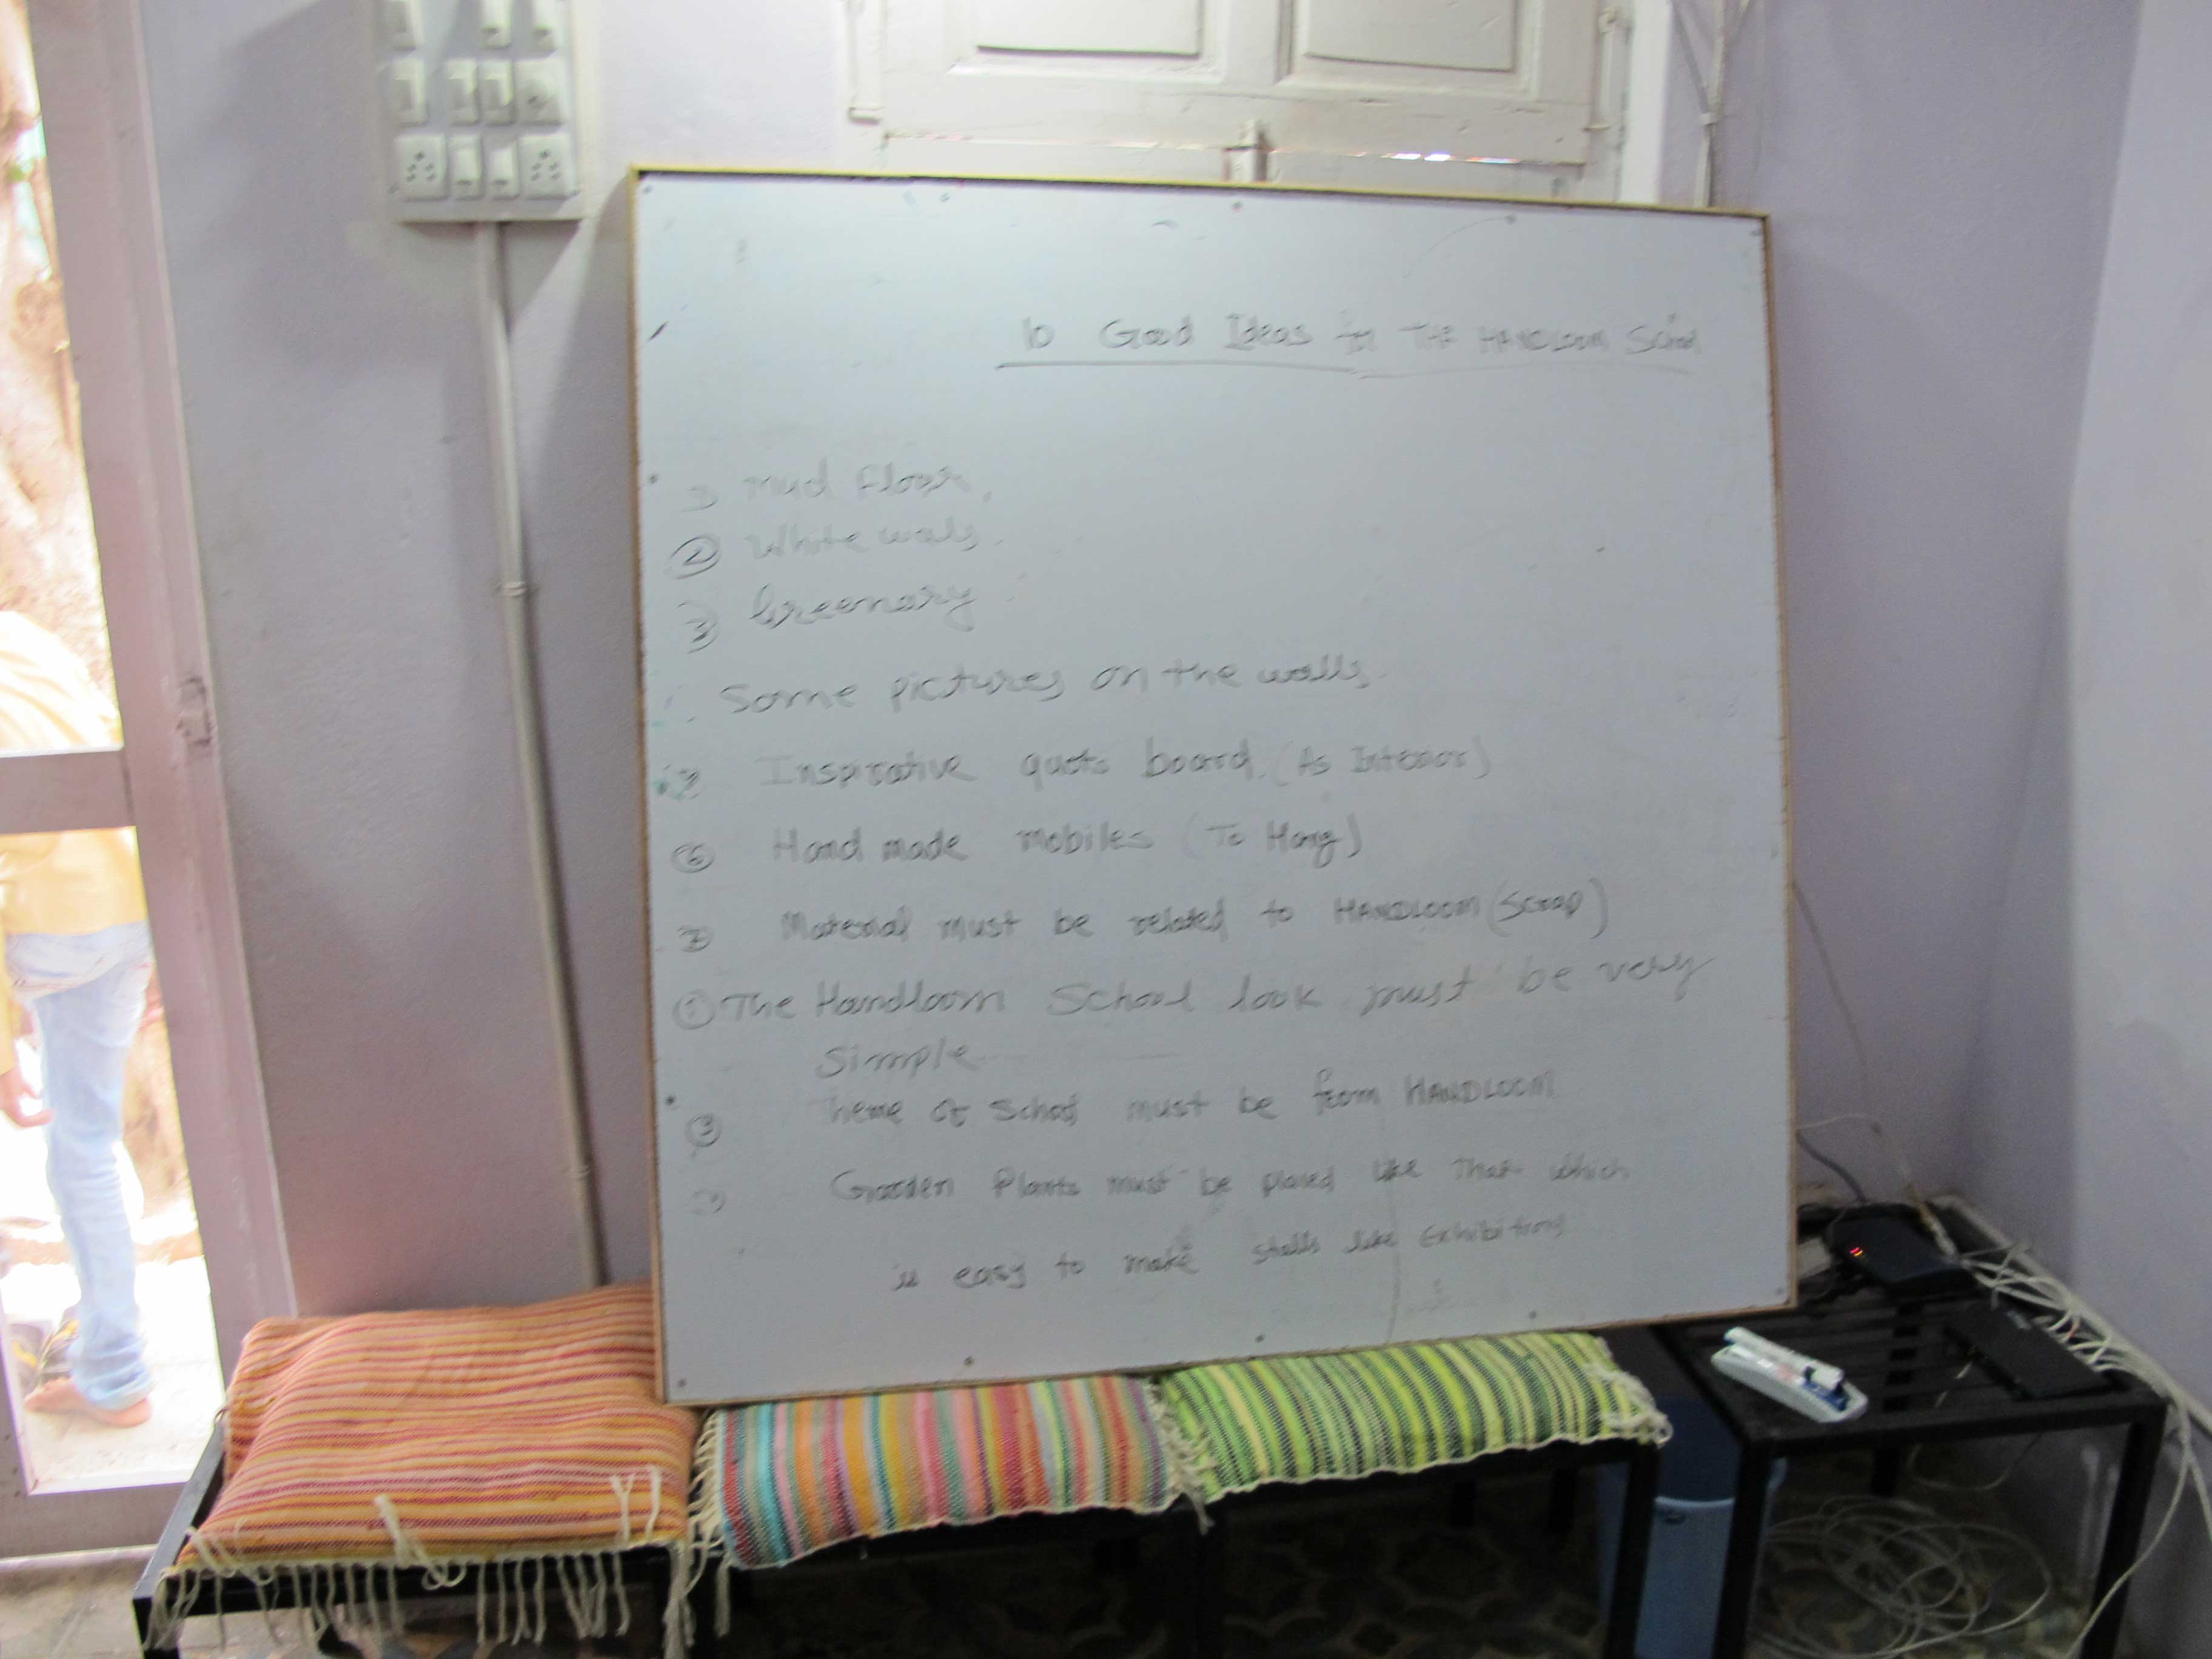 10 Good Ideas for THE HANDLOOM School
1) Mud Floor.
② White walls.
③ Greenary
Some pictures on the walls.
Inspirative quots board. (As Interior)
⑥ Hand made mobiles (To Hang)
7 Material must be related to HANDLOOM (Scrap)
The Handloom School look must be very
Simple
Theme of School must be from HANDLOOM
Garden Plants must be placed like That which
is easy to make stalls like Exhibitions